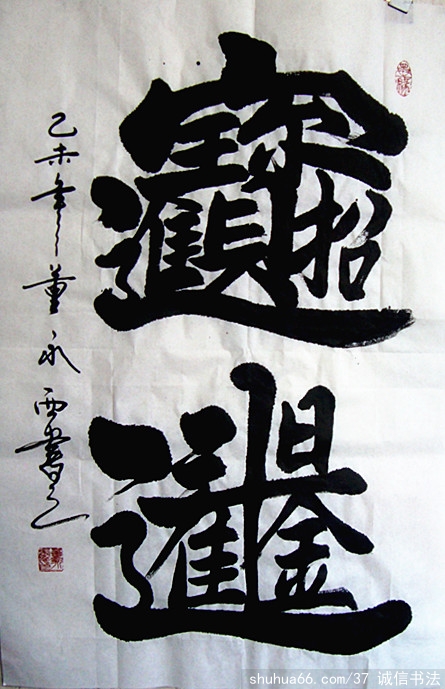 招財進寶
日進斗金
乙未年董永西書之
shuhua66.com/37 诚信书法